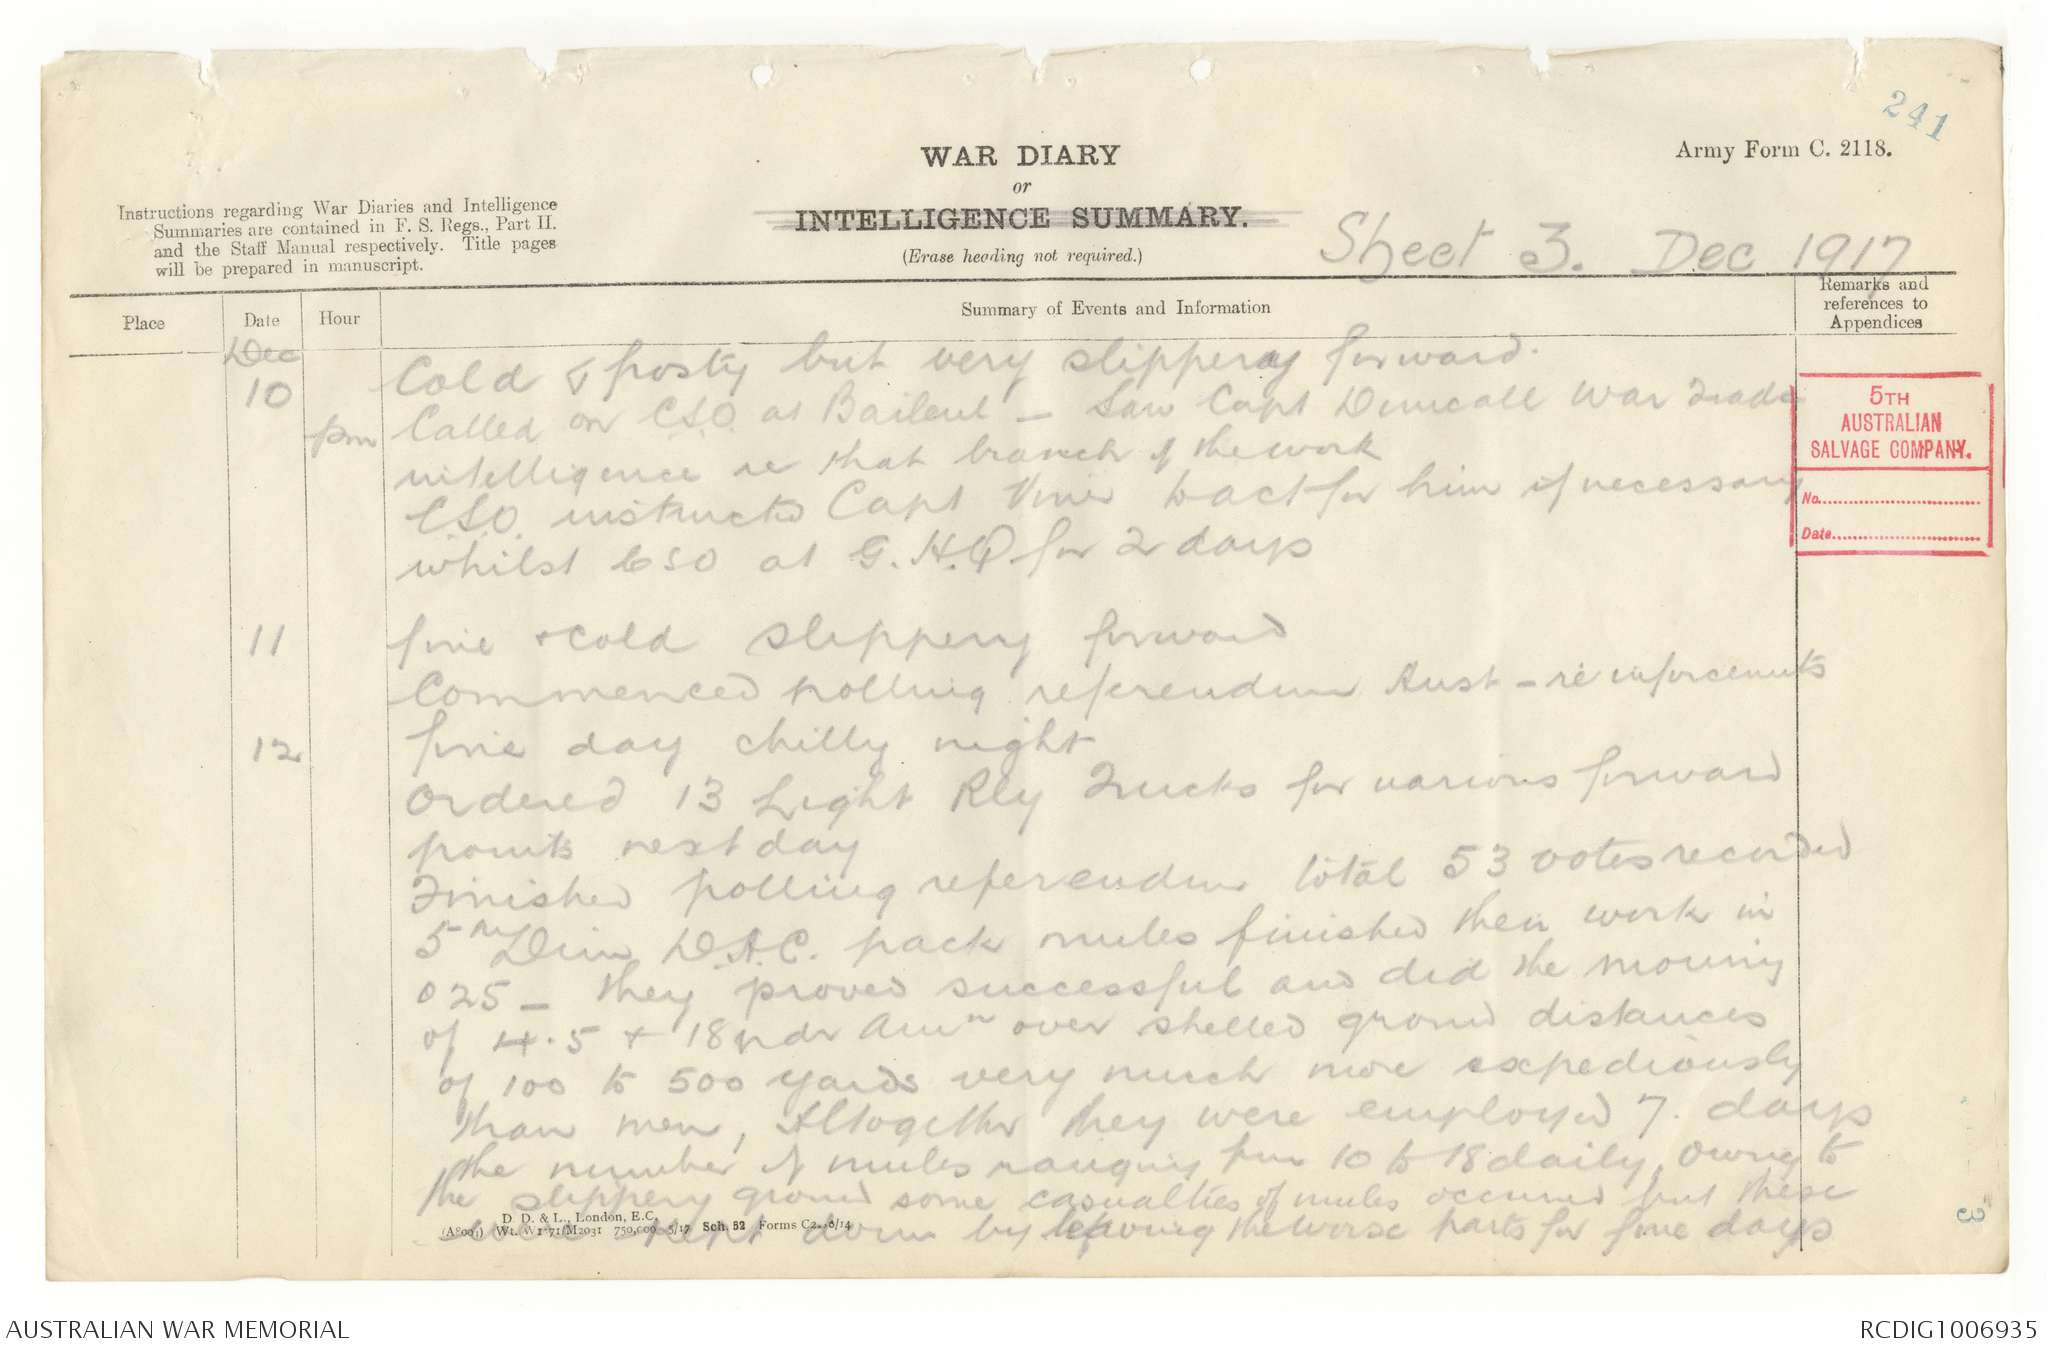 241
Army Form C. 2118.
WAR DIARY
or
INTELLIGENCE SUMMARY.
(Erase heading not required.)
Instructions regarding War Diaries and Intelligence
Summaries are contained in F. S. Regs., Part II.
and the Staff Manual respectively. Title pages
will be prepared in manuscript.
Sheet 3. Dec 1917
Place
Date
Hour
Summary of Events and Information
Remarks and
references to
Appendices
Dec
10 Cold & frosty but very slippery forward.
pm Called on CSO at Baileul – Saw Capt War Trade
intelligence re that branch of the work
C.S.O. instructed Capt to act for him if necessary
whilst CSO at G.H.Q for 2 days
11 fine + cold slippery forward
Commenced polling referendum Aust – reinforcements
12 fine day chilly night
Ordered 13 Light Rly Trucks for various forward
points next day
Finished polling referendum total 53 votes recorded
5th Divn D.A.C. pack mules finished their work in
025 – they proved successful and did the moving
of 4.5 + 18 pdr Amn over shelled ground distances
of 100 to 500 yards very much more expediously
than men, Altogether they were employed 7. days
the number of mules ranging from 10 to 18 daily, Owing to
the slippery ground some casualties of mules occurred but these
were kept down by leaving the worse parts for fine days
5TH
AUSTRALIAN
SALVAGE COMPANY.
No.
Date
D. D. & L., London, E.C.
(A8001) Wt. W1771/M2031 750,000 5/17 Sch. 52 Forms C2118/14
3
AUSTRALIAN WAR MEMORIAL
RCDIG1006935